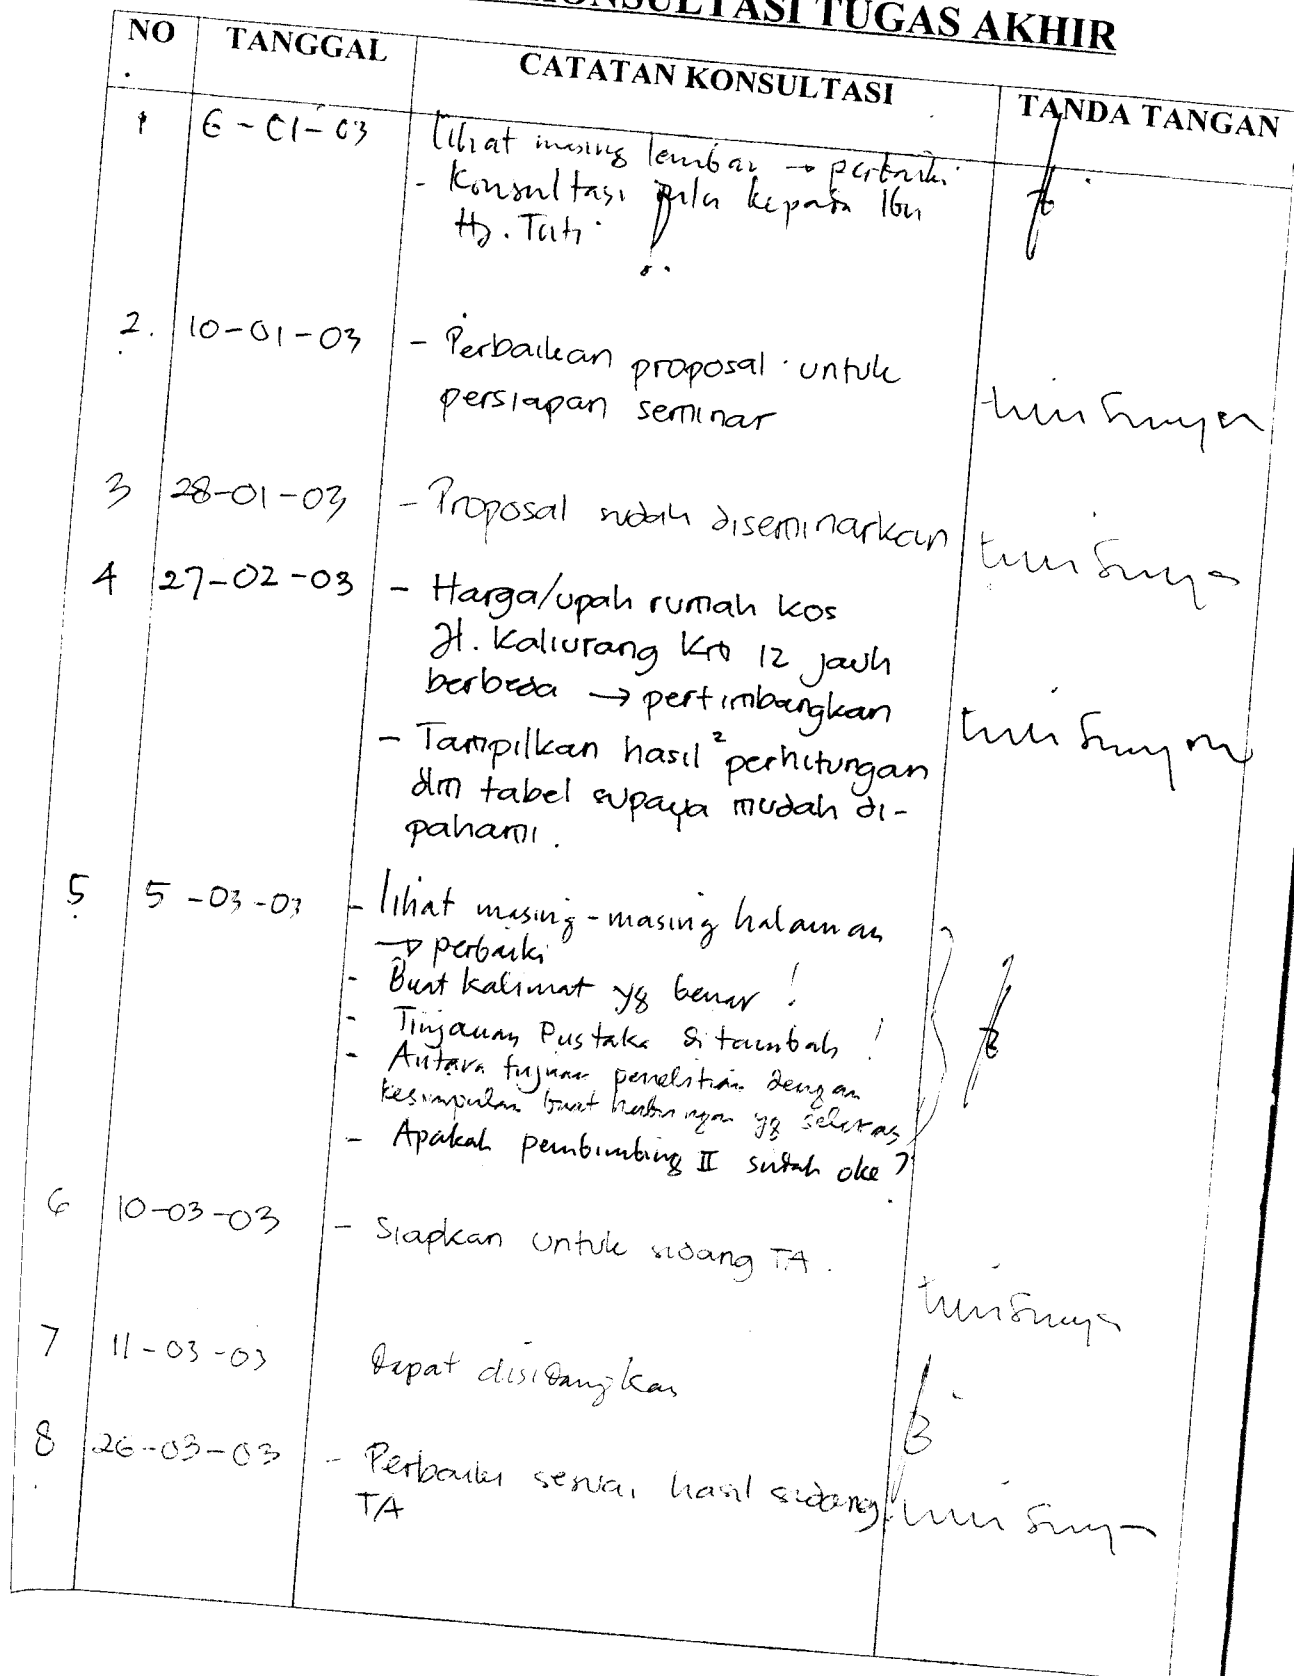 KONSULTASI TUGAS AKHIR
NO. TANGGAL CATATAN KONSULTASI TANDA TANGAN
1 6-01-03 lihat masing lembar → perbaiki
- Konsultasi pula kepada Ibu
Hj. Tuti
2. 10-01-03 - Perbaikan proposal untuk
persiapan seminar
3 28-01-03 - Proposal sudah diseminarkan
4 27-02-03 - Harga/upah rumah kos
Jl. Kaliurang Km 12 jauh
berbeda → pertimbangkan
- Tampilkan hasil² perhitungan
dlm tabel supaya mudah di-
pahami.
5 5-03-03 - lihat masing-masing halaman
→ perbaiki
- Buat kalimat yg benar !
- Tinjauan Pustaka ditambah !
- Antara tujuan penelitian dengan
kesimpulan buat hubungan yg selaras
- Apakah pembimbing II sudah oke ?
6 10-03-03 - Siapkan untuk sidang TA.
7 11-03-03 dapat disidangkan
8 26-03-03 - Perbaiki sesuai hasil sidang
TA